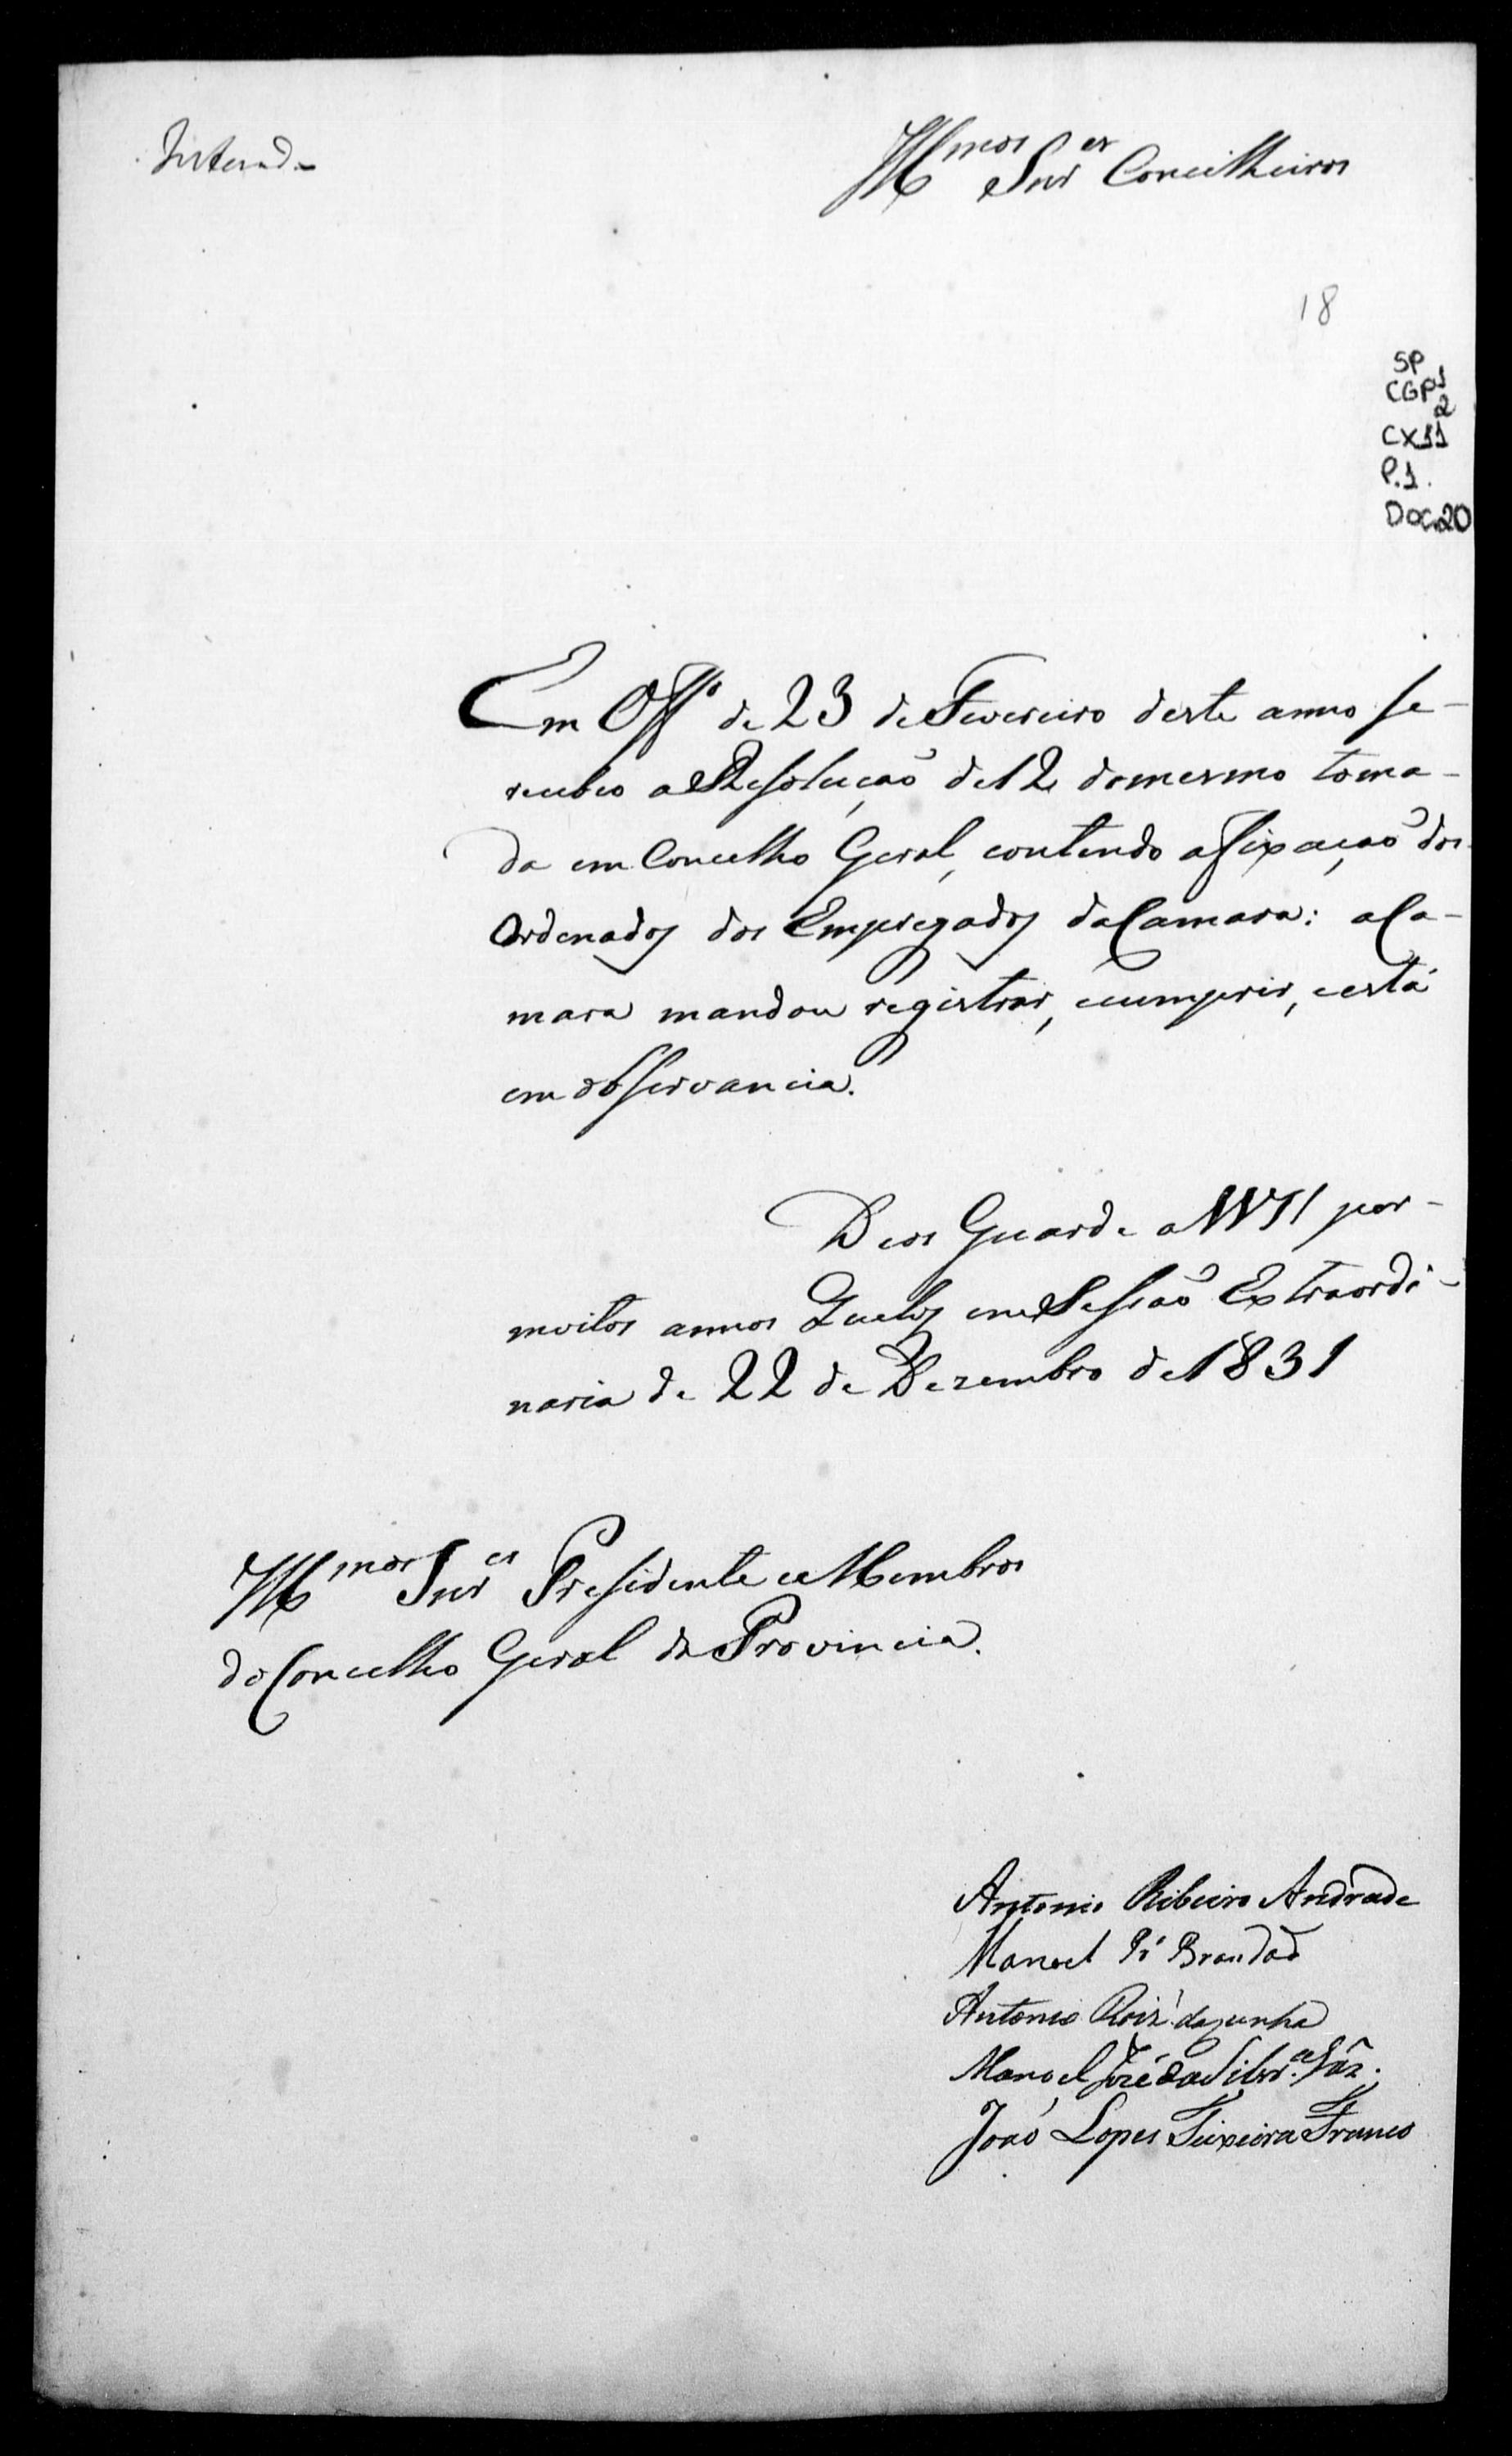 Inteirad.
Illmos Snres Concilheiros
18
SP
CGP1
2
CX11
P.1.
Doc.20
Em Offo de 23 de Fevereiro deste anno se-
recebeo a Resolução de 12 do mesmo toma-
da em Concelho Geral, contendo a fixação dos
Ordenados dos Empregados da Camara: a Ca-
mara mandou registrar, e cumprir, e está
em observancia.
Deos Guarde a VVSS por-
moitos annos Queluz em Sessão Extraordi-
naria de 22 de Dezembro de 1831
Illmos Snres Presidente e Membros
do Concelho Geral da Provincia.
Antonio Ribeiro Andrade
Manoel Pra Brandão
Antonio Roiz da Cunha
Manoel José da Silvra Vaz.
João Lopes Teixeira Franco